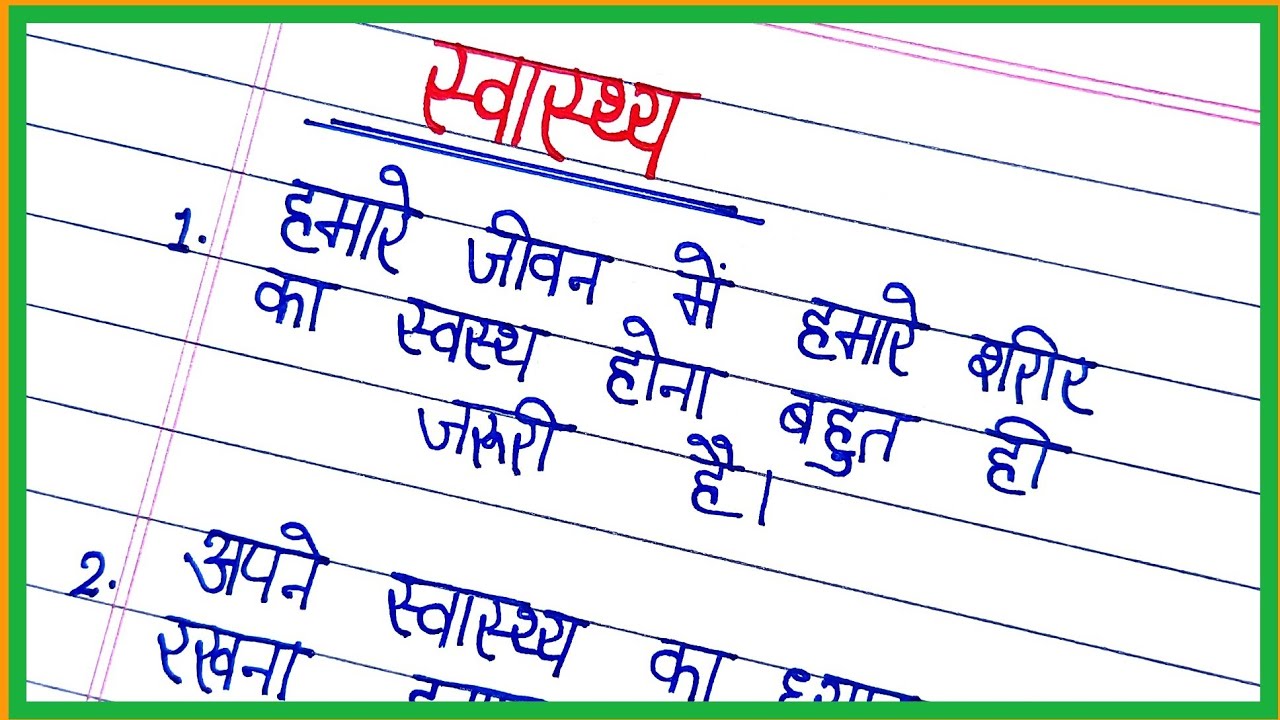 स्वास्थ्य
1. हमारे जीवन में हमारे शरीर
का स्वस्थ होना बहुत ही
जरूरी है।
2. अपने स्वास्थ्य का
रखना